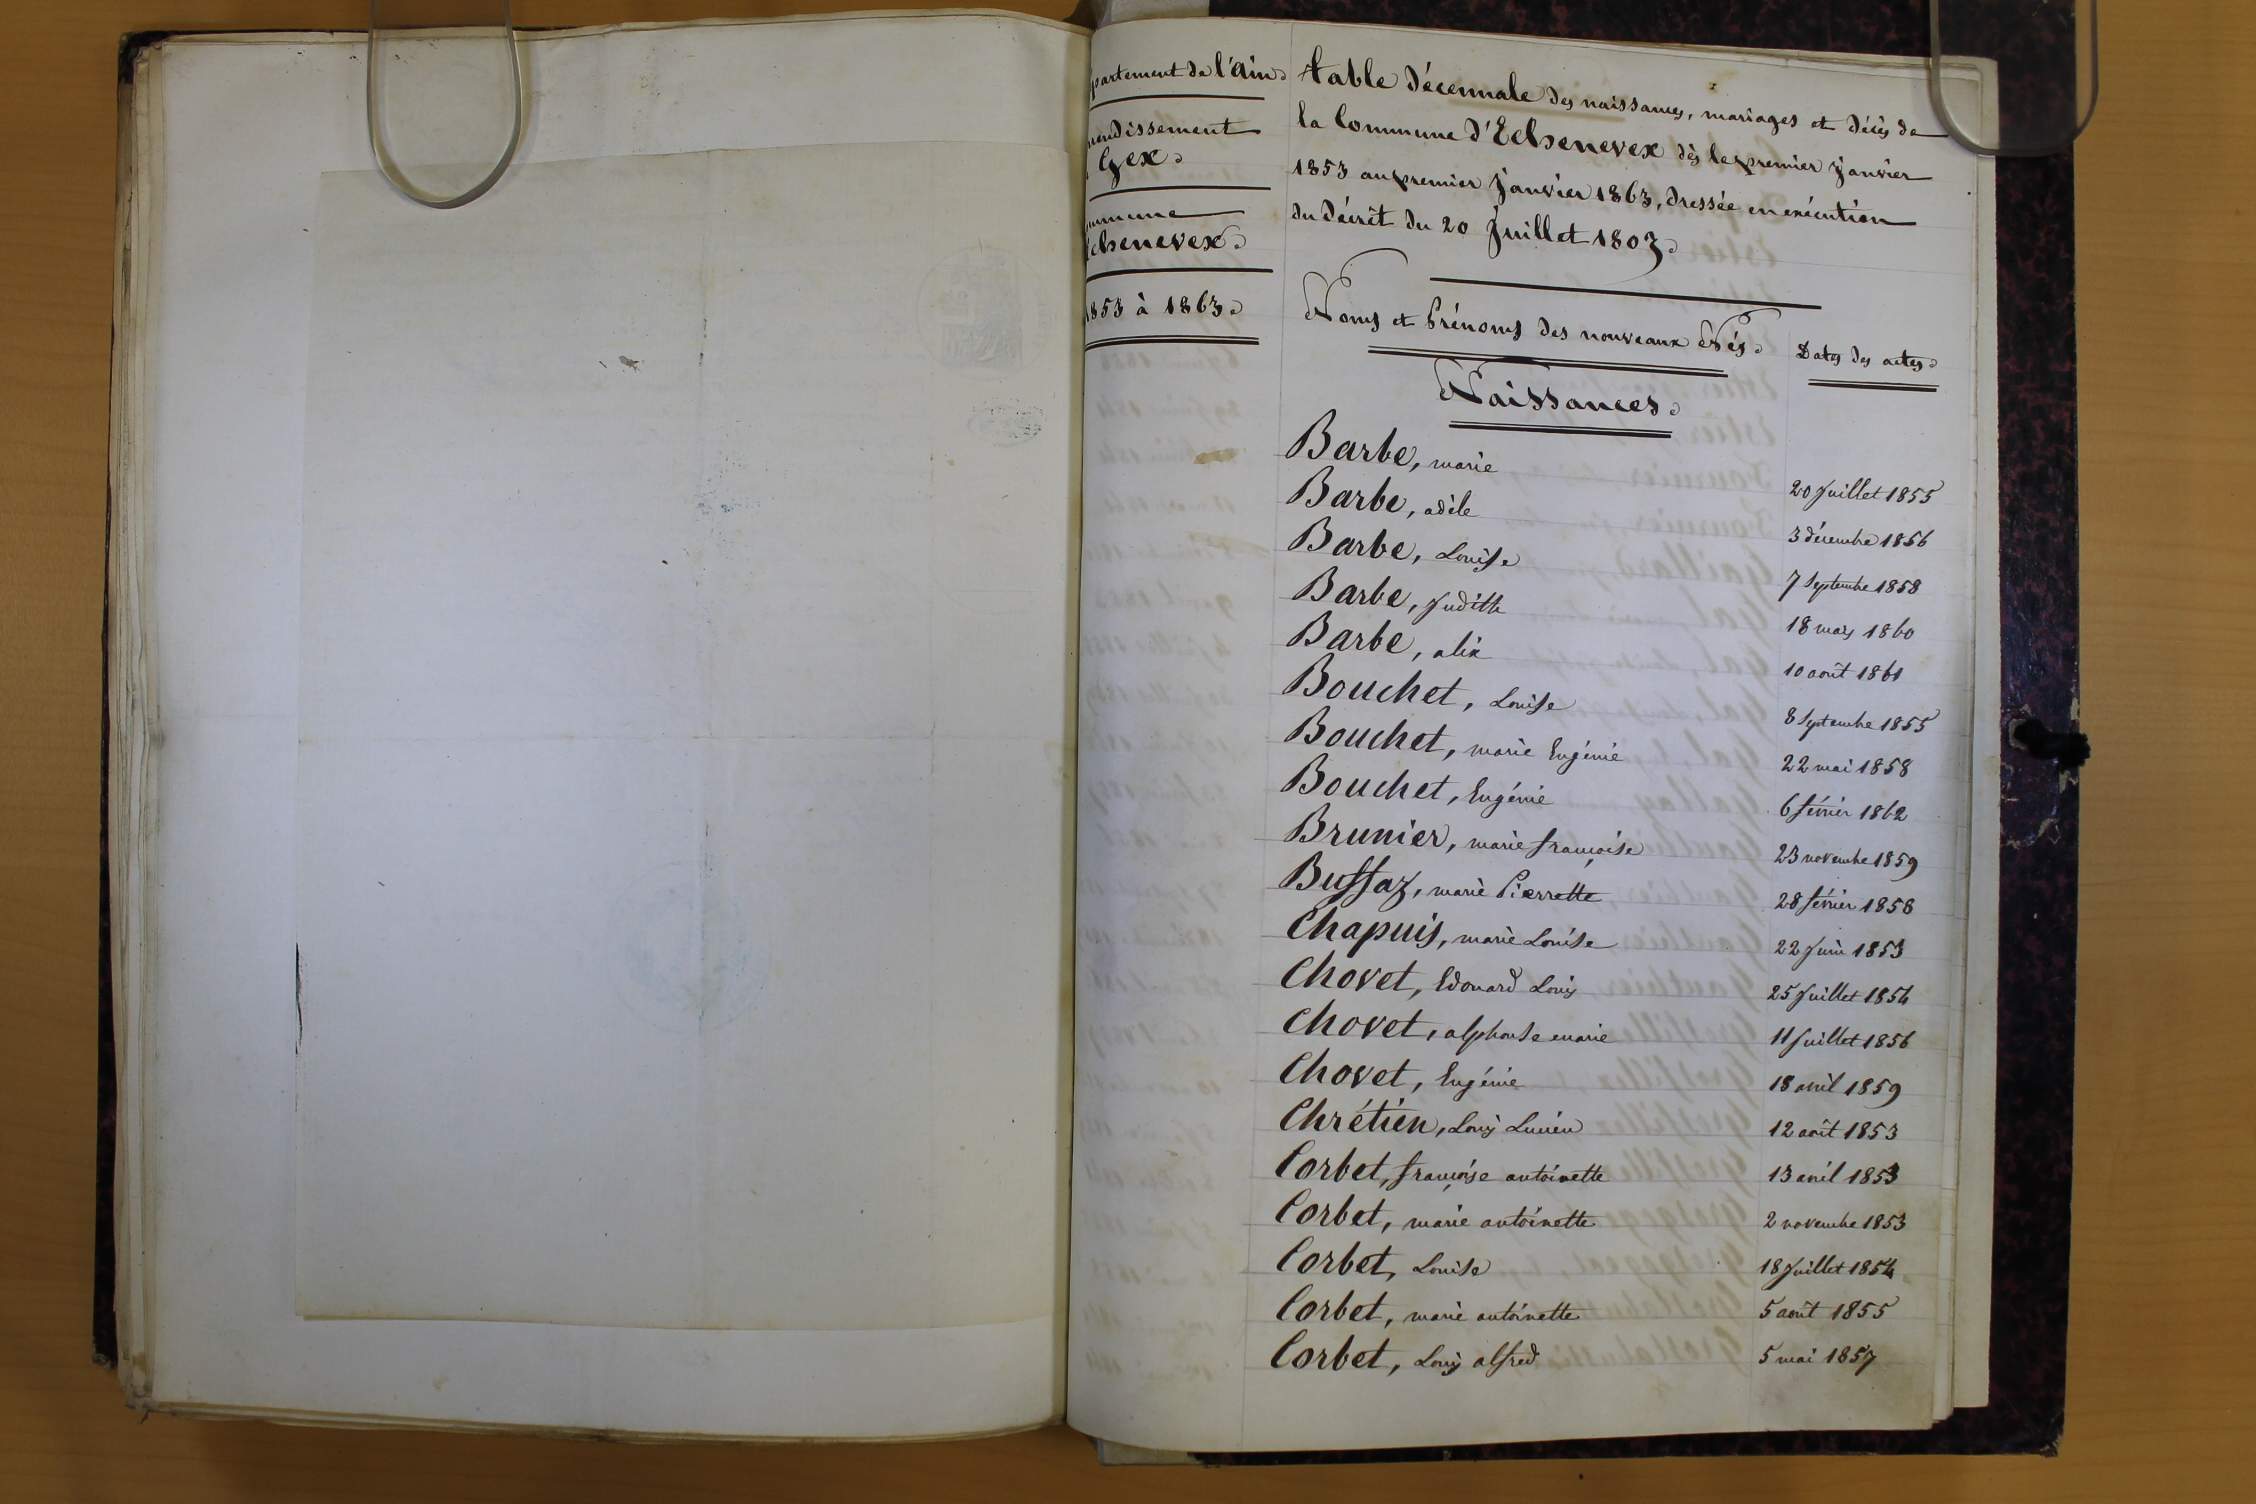 partement de l'ain
ndissement
Gex
mmune
chenevex
1853 à 1863
table décennale des naissances, mariages et décès de
la Commune d'Echenevex dès le premier janvier
1853 au premier janvier 1863, dressée en exécution
du décrèt du 20 Juillet 1807
Noms et Prénoms des nouveaux Nés
Dates des actes
Naissances
Barbe, marie 20 Juillet 1855
Barbe, adèle 3 décembre 1856
Barbe, Louise 7 Septembre 1858
Barbe, Judith 18 mars 1860
Barbe, alix 10 août 1861
Bouchet, Louise 8 Septembre 1855
Bouchet, marie Eugénie 22 mai 1858
Bouchet, Eugénie 6 février 1862
Brunier, marie françoise 23 novembre 1859
Bussaz, marie Pierrette 28 février 1858
Chapuis, marie Louise 22 Juin 1853
Chovet, Edouard Louis 25 Juillet 1854
Chovet, alphonse marie 11 Juillet 1856
Chovet, Eugénie 18 avril 1859
Chrétien, Louis Lucien 12 août 1853
Corbet, françoise antoinette 13 avril 1853
Corbet, marie antoinette 2 novembre 1853
Corbet, Louise 18 Juillet 1854
Corbet, marie antoinette 5 août 1855
Corbet, Louis alfred 5 mai 1857